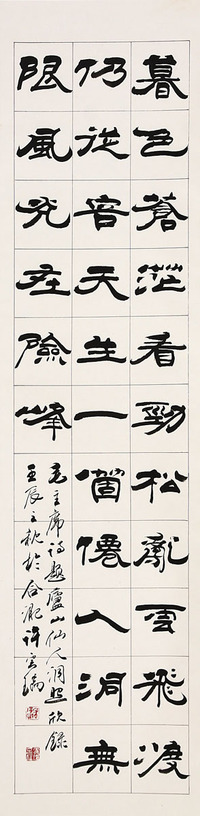 暮色蒼茫看勁松亂雲飛渡
仍從容天生一箇僊人洞無
限風光在險峰
毛主席詩題廬山仙人洞照欣錄
壬辰之秋於合肥許雲